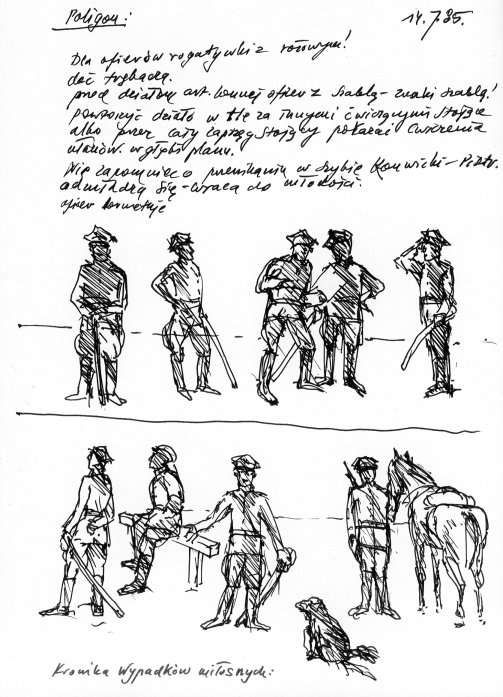 Poligon:
14.7.85.
Dla oficerów rogatywki z różowym!
dać trębacza.
przed działem art. konnej oficer z szablą - znaki szablą!
powtórzyć działo w tle za innymi ćwiczącymi stojące
albo przez cały zaprzęg stojący pokazać ćwiczenia
ułanów w głębi planu.
Nie zapomnieć o przenikaniu w szybie Konwicki -
odmładza się - wraca do młodości.
oficer
Kronika Wypadków miłosnych: